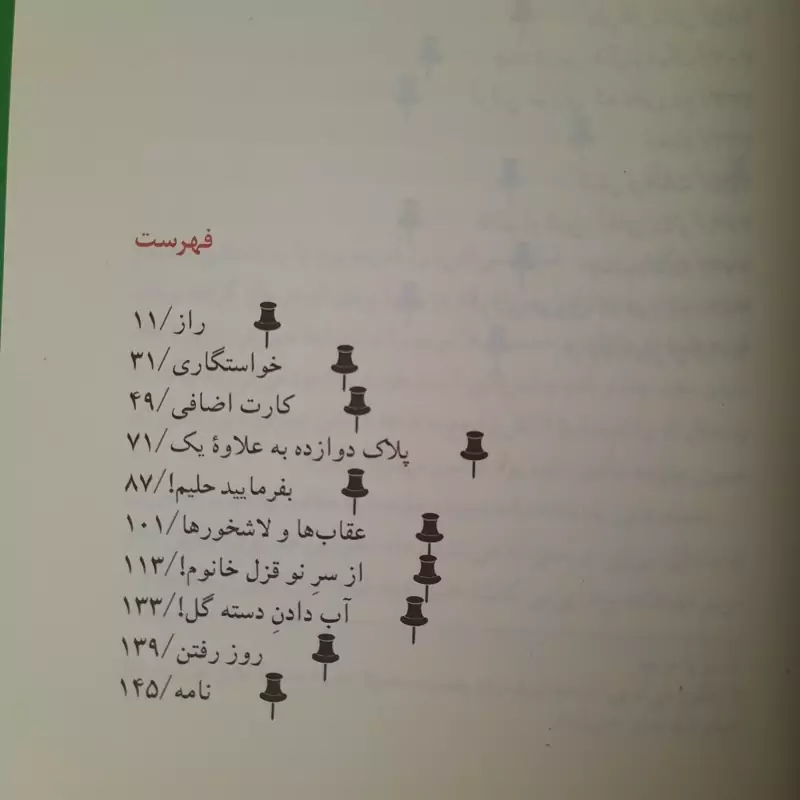 فهرست
راز/۱۱
خواستگاری/۳۱
کارت اضافی/۴۹
پلاک دوازده به علاوهٔ یک/۷۱
بفرمایید حلیم!/۸۷
عقاب‌ها و لاشخورها/۱۰۱
از سرِ نو قزل خانوم!/۱۱۳
آب دادنِ دسته گل!/۱۳۳
روز رفتن/۱۳۹
نامه/۱۴۵